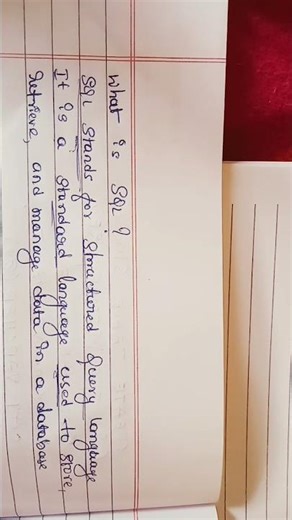 What is SQL ?
SQL Stands for Structured Query language
It is a Standard language used to store,
Retrieve, and manage data in a database